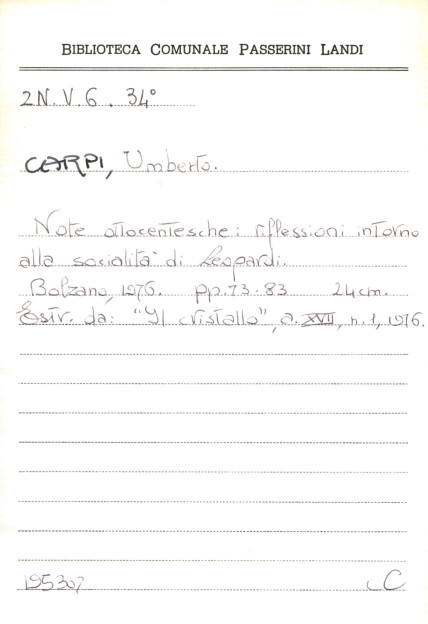 BIBLIOTECA COMUNALE PASSERINI LANDI
2N.V.6. 34°
CARPI, Umberto.
Note ottocentesche: riflessioni intorno
alla socialità di Leopardi.
Bolzano, 1976. pp. 73-83 24 cm.
Estr. da: "Il cristallo", a. XVII, n. 1, 1976.
195307 C